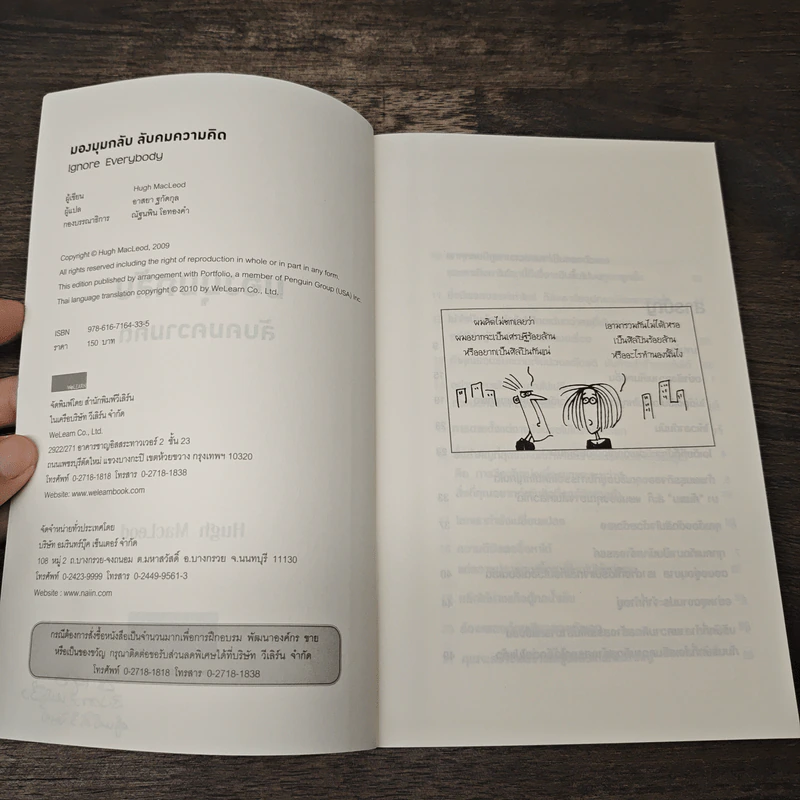 มองมุมกลับ ลับคมความคิด
Ignore Everybody
ผู้เขียน Hugh MacLeod
ผู้แปล อาสยา ฐกัดกุล
กองบรรณาธิการ ณัฐนพิน โอทองคำ
Copyright © Hugh MacLeod, 2009
All rights reserved including the right of reproduction in whole or in part in any form.
This edition published by arrangement with Portfolio, a member of Penguin Group (USA) Inc
Thai language translation copyright © 2010 by WeLearn Co., Ltd.
ISBN 978-616-7164-33-5
ราคา 150 บาท
WeLearn
จัดพิมพ์โดย สำนักพิมพ์วีเลิร์น
ในเครือบริษัท วีเลิร์น จำกัด
WeLearn Co., Ltd.
2922/271 อาคารชาญอิสสระทาวเวอร์ 2 ชั้น 23
ถนนเพชรบุรีตัดใหม่ แขวงบางกะปิ เขตห้วยขวาง กรุงเทพฯ 10320
โทรศัพท์ 0-2718-1818 โทรสาร 0-2718-1838
Website: www.welearnbook.com
จัดจำหน่ายทั่วประเทศโดย
บริษัท อมรินทร์บุ๊ค เซ็นเตอร์ จำกัด
108 หมู่ 2 ถ.บางกรวย-จงถนอม ต.มหาสวัสดิ์ อ.บางกรวย จ.นนทบุรี 11130
โทรศัพท์ 0-2423-9999 โทรสาร 0-2449-9561-3
Website : www.naiin.com
กรณีต้องการสั่งซื้อหนังสือเป็นจำนวนมากเพื่อการฝึกอบรม พัฒนาองค์กร ขาย
หรือเป็นของขวัญ กรุณาติดต่อขอรับส่วนลดพิเศษได้ที่บริษัท วีเลิร์น จำกัด
โทรศัพท์ 0-2718-1818 โทรสาร 0-2718-1838
ผมคิดไม่ตกเลยว่า
ผมอยากจะเป็นเศรษฐีร้อยล้าน
หรืออยากเป็นศิลปินกันแน่
เอามารวมกันไม่ได้เหรอ
เป็นศิลปินร้อยล้าน
หรืออะไรทำนองนั้นไง